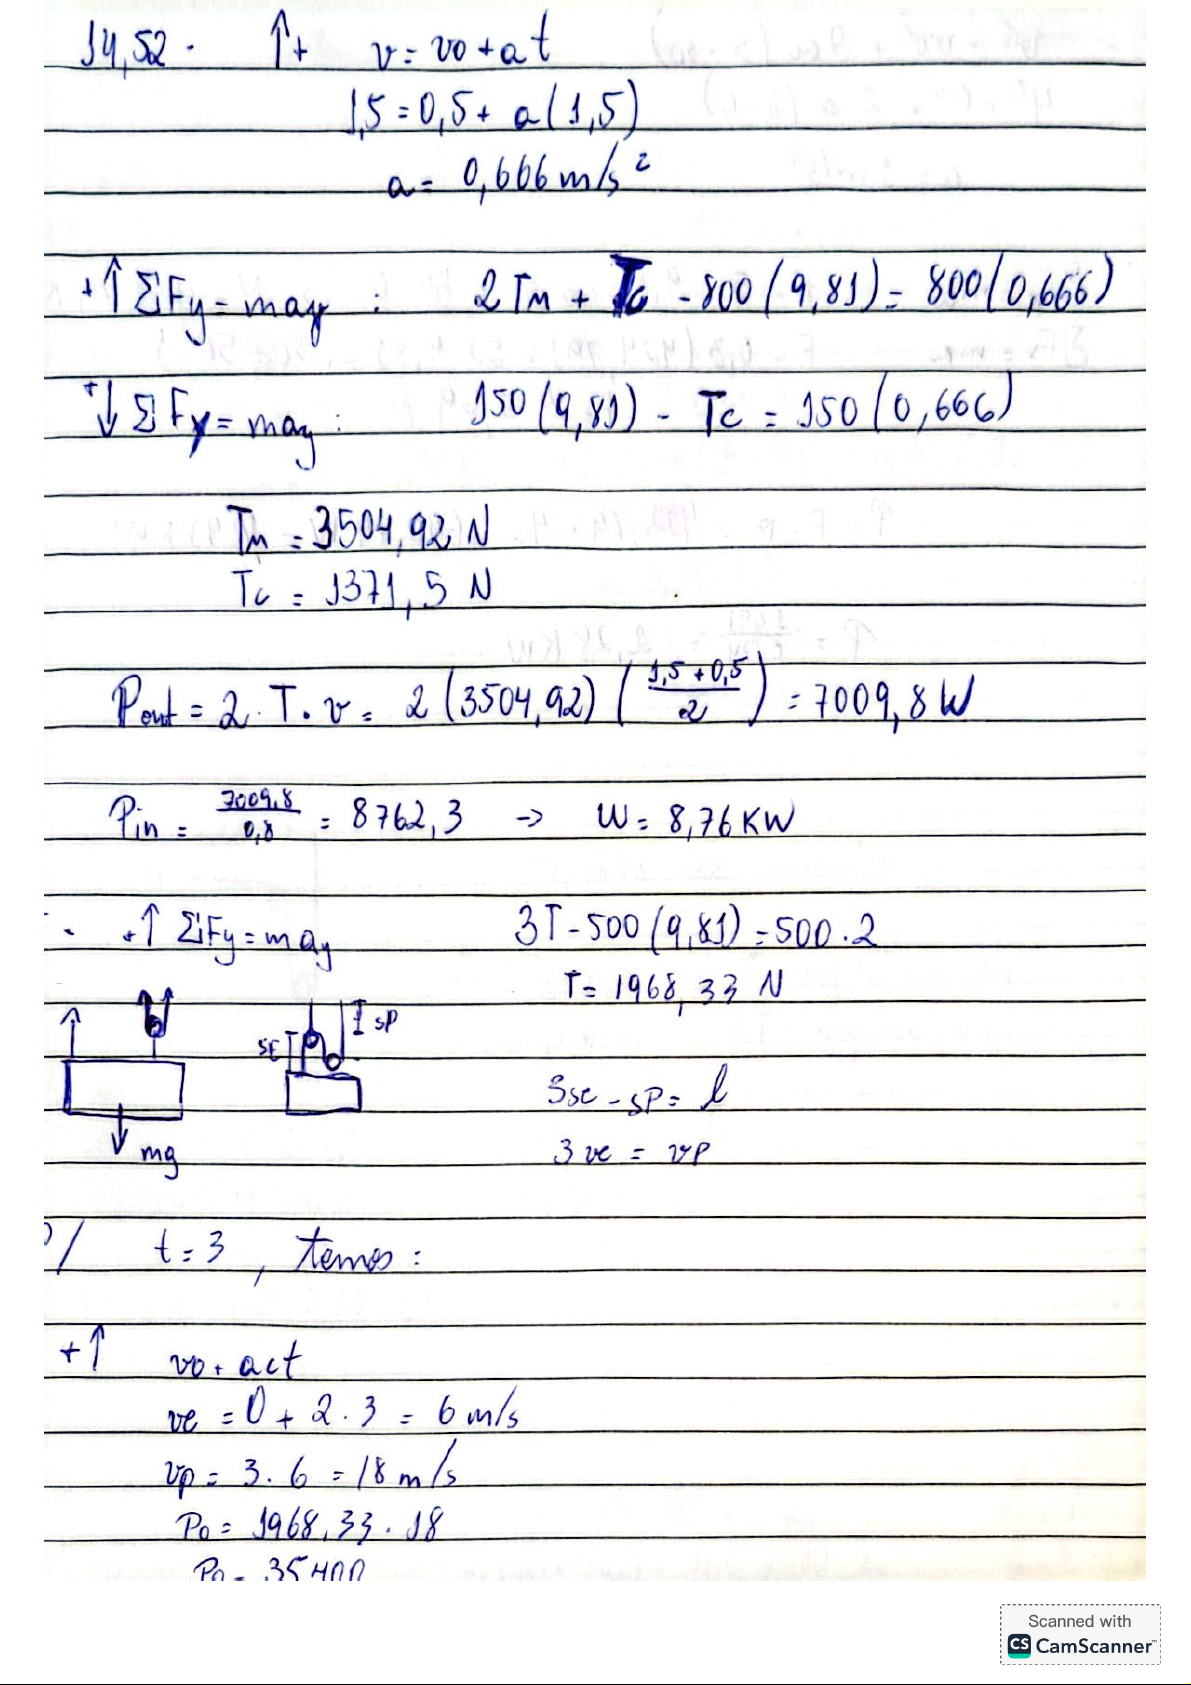 14,52. ↑+ v = vo + a t
1,5 = 0,5 + a(1,5)
a = 0,666 m/s²
+↑ ΣFy = may : 2 Tm + Tc - 800 (9,81) = 800 (0,666)
+↓ ΣFy = may : 150 (9,81) - Tc = 150 (0,666)
Tm = 3504,92 N
Tc = 1371,5 N
Pout = 2 . T . v = 2 (3504,92) ( (1,5 + 0,5)/2 ) = 7009,8 W
Pin = 7009,8/0,8 = 8762,3 → W = 8,76 KW
. +↑ ΣFy = may 3T - 500 (9,81) = 500 . 2
T = 1968,33 N
SE SP
3se - sP = l
mg 3 ve = vP
P/ t = 3 , temos :
+↑ vo + act
ve = 0 + 2 . 3 = 6 m/s
vp = 3 . 6 = 18 m/s
Po = 1968,33 . 18
Po = 35400
Scanned with
CS CamScanner